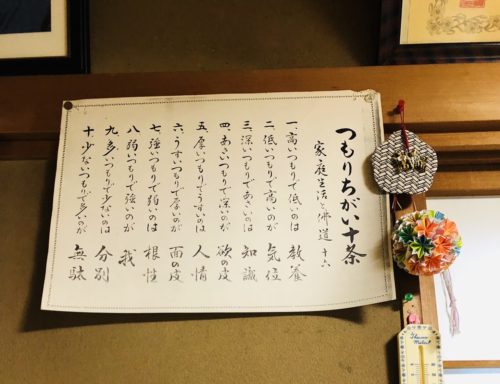 つもりちがい十条
家庭生活と佛道 十六
一、高いつもりで低いのは 教養
二、低いつもりで高いのが 気位
三、深いつもりであさいのは 知識
四、あさいつもりで深いのが 欲の皮
五、厚いつもりでうすいのは 人情
六、うすいつもりで厚いのが 面の皮
七、強いつもりで弱いのは 根性
八、弱いつもりで強いのが 我
九、多いつもりで少ないのは 分別
十、少ないつもりで多いのが 無駄